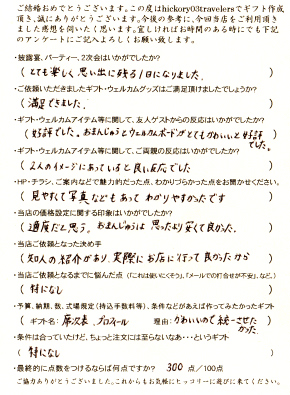 ご結婚おめでとうございます。この度はhickory03travelersでギフト作成
頂き、誠にありがとうございます。今後の参考に、今回当店をご利用頂き
ました感想を伺いたく思います。宜しければお時間のある時にでも下記
のアンケートにご記入よろしくお願い致します。
・披露宴、パーティー、2次会はいかがでしたか?
(とても楽しく思い出に残る1日になりました。)
・ご依頼いただきましたギフト・ウェルカムグッズはご満足頂けましたでしょうか?
(満足できました。)
・ギフト・ウェルカムアイテム等に関して、友人ゲストからの反応はいかがでしたか?
(好評でした。おまんじゅうとウェルカムボードがとてもかわいいと好評でした。)
・ギフト・ウェルカムアイテム等に関して、ご両親の反応はいかがでしたか?
(2人のイメージにあっていると良い反応でした)
・HP・チラシ、ご案内などで魅力的だった点、わかりづらかった点をお聞かせください。
(見やすくて写真などもあってわかりやすかったです)
・当店の価格設定に関する印象はいかがでしたか?
(適度だと思う。おまんじゅうは思ったより安くて良かった。)
・当店ご依頼となった決め手
(知人の紹介があり、実際にお店に行って良かったから)
・当店ご依頼となるまでに悩んだ点(「これは使いにくそう」、「メールでの打合せが不安」、など)
(特になし)
・予算、納期、数、式場規定(持込手数料等)、条件などがあえば作ってみたかったギフト
(ギフト名:席次表、プロフィール 理由:かわいいので統一させたかった)
・条件は合っていたけど、ちょっと注文には至らないなあ・・・というギフト
(特になし)
・最終的に点数をつけるならば何点ですか? 300点/100点
ご協力ありがとうございました。これからもお気軽にヒッコリーに遊びに来てください。